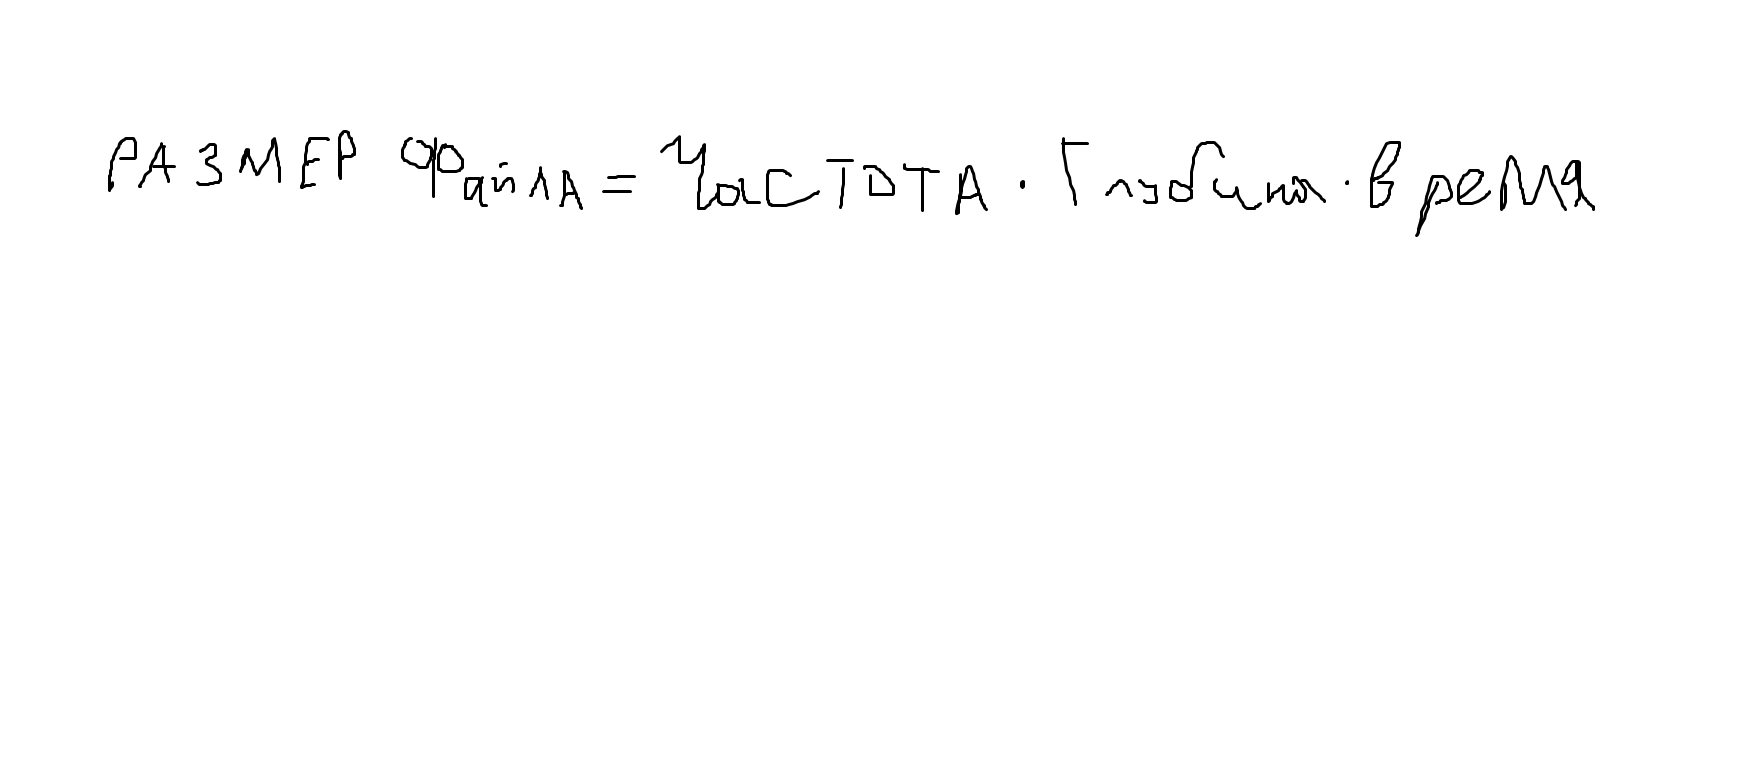 РАЗМЕР Файла = Частота · Глубина · время